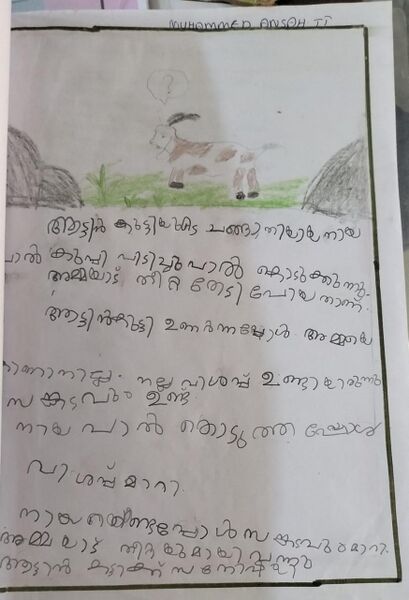 MUHAMMED ANSAH TT
?
ആട്ടിൻ കുട്ടിയുടെ ചങ്ങാതിയായ നായ
പാൽ കുപ്പി പിടിച്ചു പാൽ കൊടുക്കുന്നു.
അമ്മയാട് തീറ്റ തേടി പോയതാണ്.
ആട്ടിൻകുട്ടി ഉണർന്നപ്പോൾ അമ്മയെ
കാണാനില്ല. നല്ല വിശപ്പ് ഉണ്ടായിരുന്നു
സങ്കടവും ഉണ്ട്
നായ പാൽ കൊടുത്തപ്പോൾ
വിശപ്പ് മാറി.
നായയെ കണ്ടപ്പോൾ സങ്കടവും മാറി.
അമ്മയാട് തീറ്റയുമായി വന്നു
ആട്ടിൻ കുട്ടിക്ക് സന്തോഷമായി